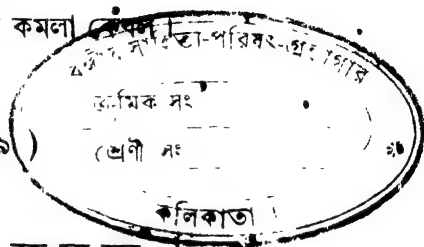 কমলা
বঙ্গীয় সাহিত্য-পরিষৎ-গ্রন্থাগার
ক্রমিক সং
৯ )
শ্রেণী সং
কলিকাতা